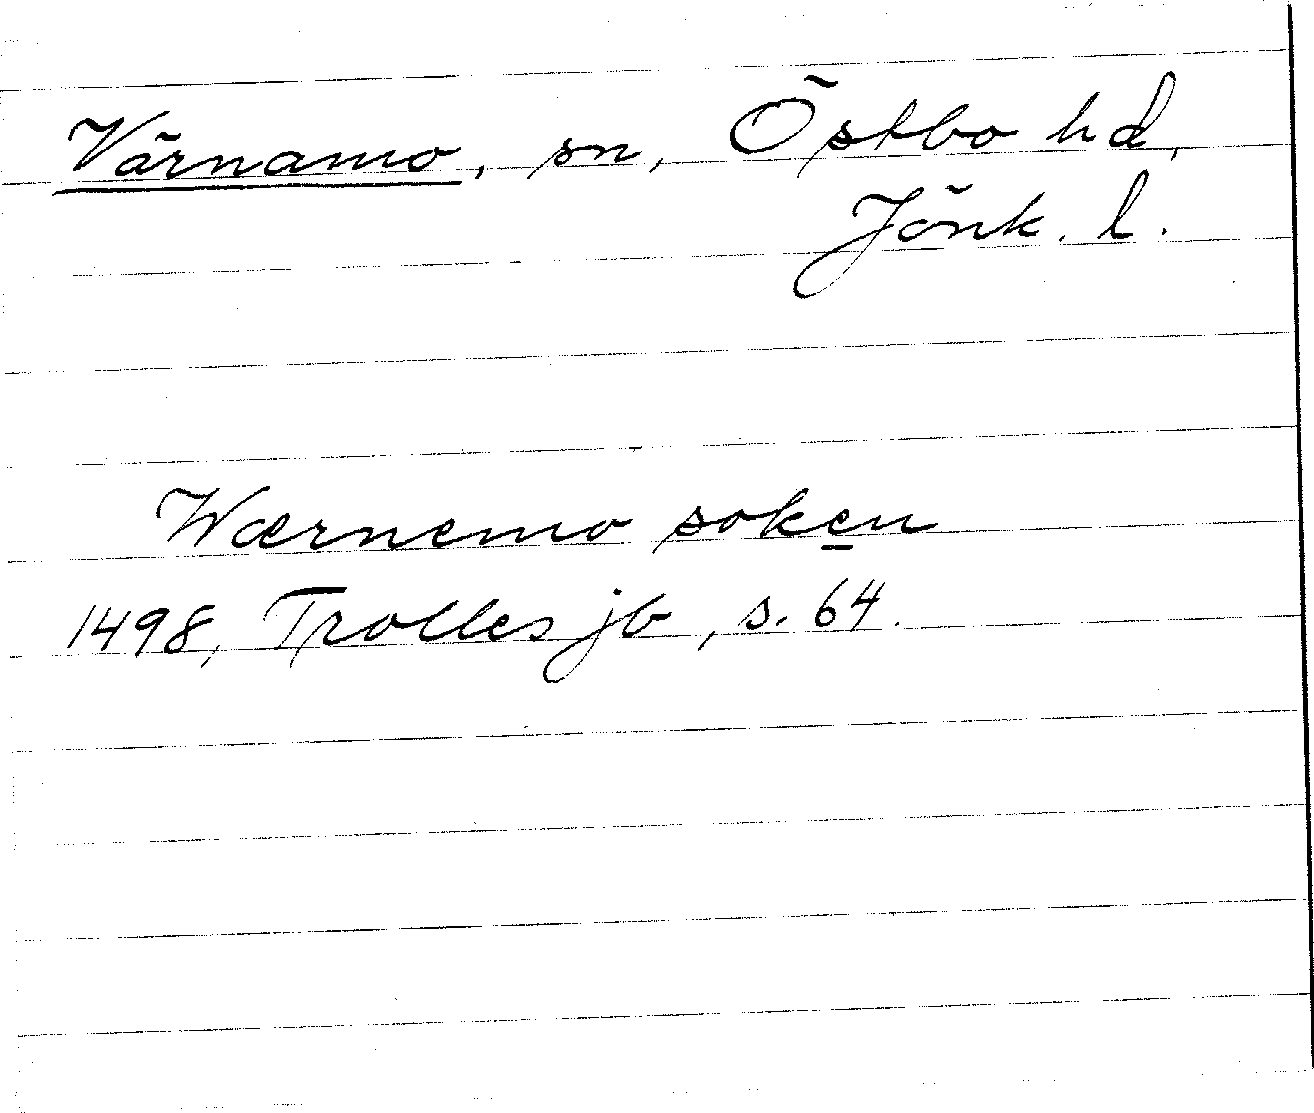 Värnamo, sn, Östbo hd,
Jönk. l.
Wærnemo soken
1498, Trolles jb, s. 64.